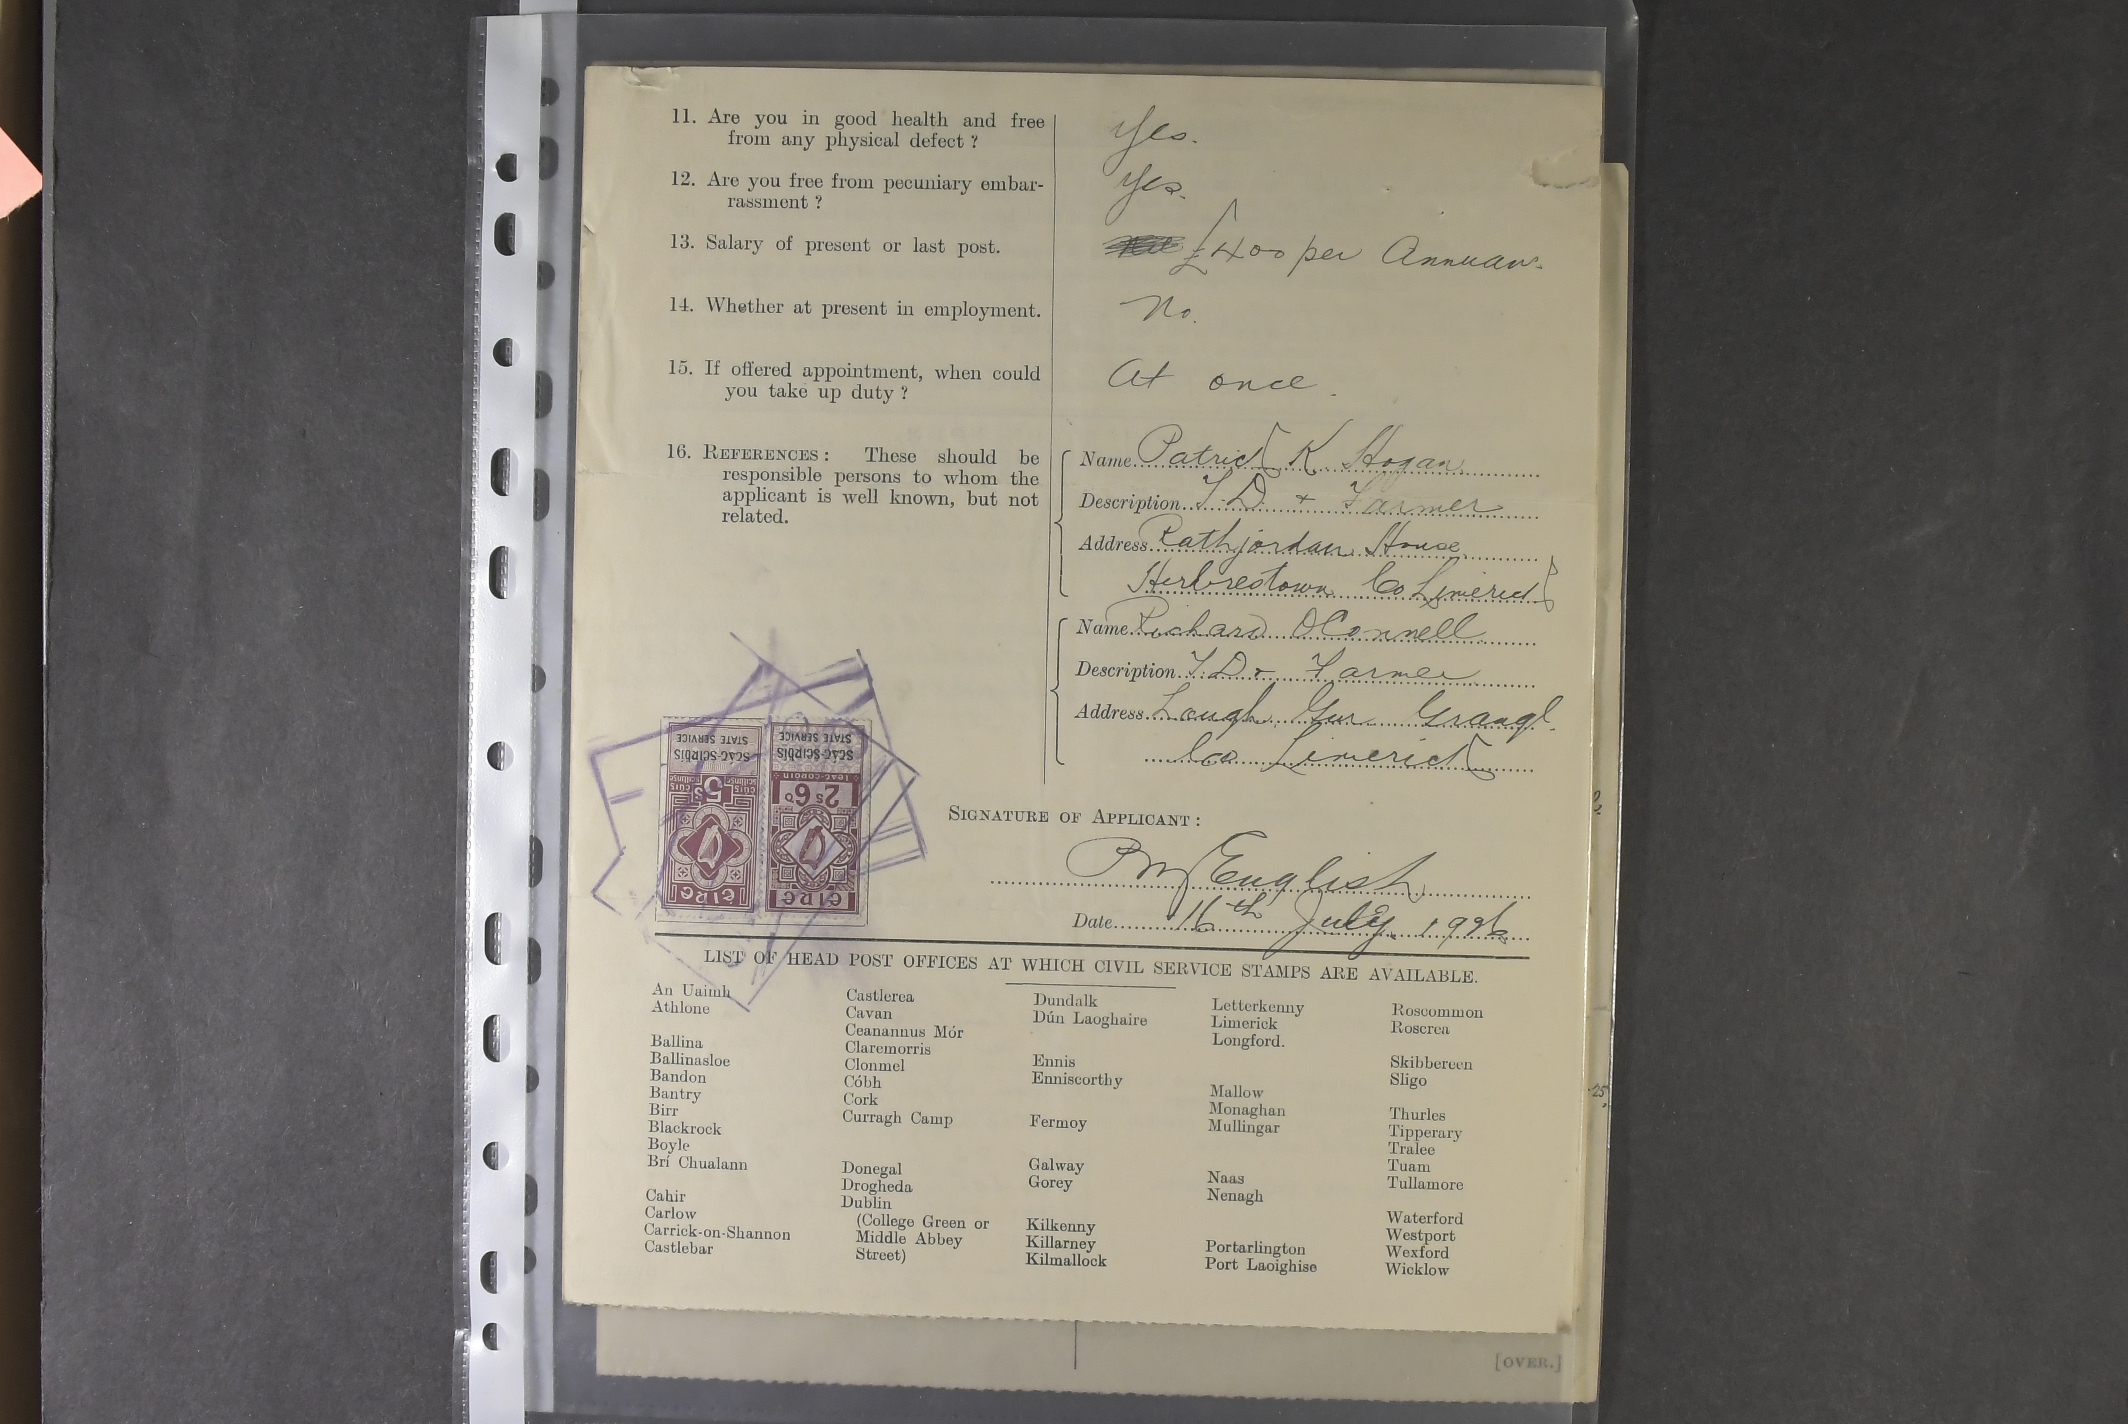 11. Are you in good health and free
from any physical defect ?
Yes.
12. Are you free from pecuniary embar-
rassment ?
Yes.
13. Salary of present or last post.
£400 per Annum.
14. Whether at present in employment.
No.
15. If offered appointment, when could
you take up duty ?
At once.
16. REFERENCES : These should be
responsible persons to whom the
applicant is well known, but not
related.
Name Patrick K. Hogan
Description T.D. + Farmer
Address Rathjordan House
Herbertstown Co Limerick
Name Richard O'Connell
Description T.D + Farmer
Address Lough Gur Grange
Co. Limerick
STÁT-SEIRBHÍS
STATE SERVICE
5s
éire
STÁT-SEIRBHÍS
STATE SERVICE
2s 6d
éire
SIGNATURE OF APPLICANT :
PM English
Date 16th July 1926
LIST OF HEAD POST OFFICES AT WHICH CIVIL SERVICE STAMPS ARE AVAILABLE.
An Uaimh
Athlone
Ballina
Ballinasloe
Bandon
Bantry
Birr
Blackrock
Boyle
Brí Chualann
Cahir
Carlow
Carrick-on-Shannon
Castlebar
Castlerea
Cavan
Ceanannus Mór
Claremorris
Clonmel
Cóbh
Cork
Curragh Camp
Donegal
Drogheda
Dublin
(College Green or
Middle Abbey
Street)
Dundalk
Dún Laoghaire
Ennis
Enniscorthy
Fermoy
Galway
Gorey
Kilkenny
Killarney
Kilmallock
Letterkenny
Limerick
Longford.
Mallow
Monaghan
Mullingar
Naas
Nenagh
Portarlington
Port Laoighise
Roscommon
Roscrea
Skibbereen
Sligo
Thurles
Tipperary
Tralee
Tuam
Tullamore
Waterford
Westport
Wexford
Wicklow
25
[OVER.]